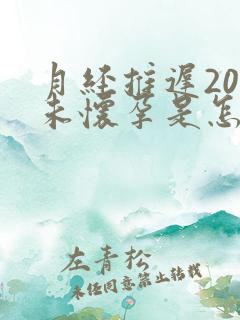 月经推迟20
未怀孕是怎
左青松
未经同意禁止转载